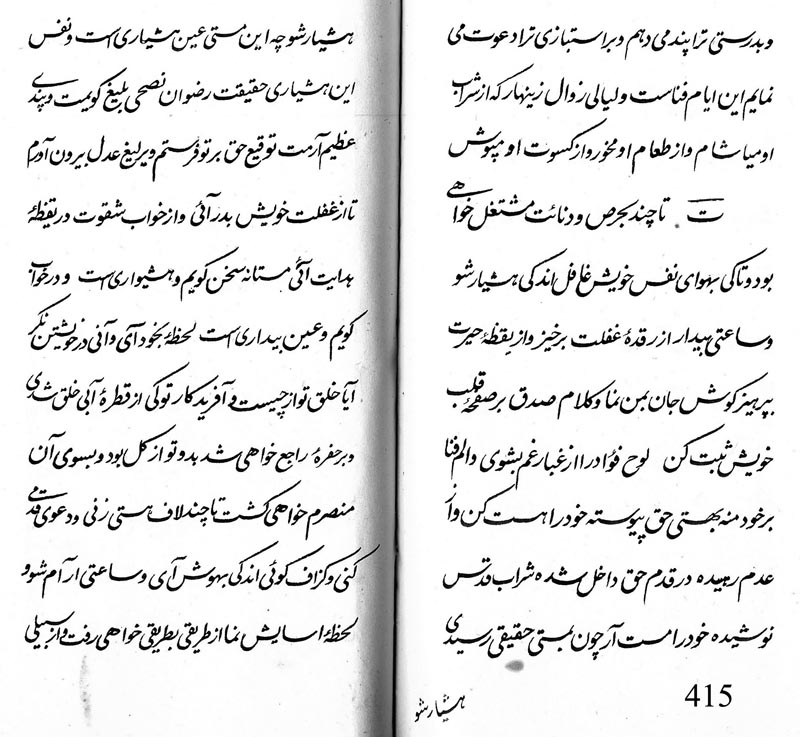 و بدرستی ترا پند می دهم و براستبازی ترا دعوت می
نمایم این ایام فناست و لیالی زوال زینهار که از شراب
او میاشام و از طعام او مخور و از کسوت او مپوش
ت تا چند بحرص و دنائت مشتغل خواهی
بود و تا کی بهوای نفس خویش غافل اندکی هشیار شو
و ساعتی بیدار از رقدهٔ غفلت برخیز و از یقظهٔ حیرت
بپرهیز کوش جان بمن نما و کلام صدق بر صفحهٔ قلب
خویش ثبت کن لوح فؤاد را از غبار غم بشوی و الم فنا
بر خود منه بهستی حق پیوسته خود را هست کن و از
عدم رهیده در قدم حق داخل شده شراب قدس
نوشیده خود را مست آر چون بمستی حقیقی رسیدی
هشیار شو
415
هشیار شو چه این مستی عین هشیاری است و نفس
این هشیاری حقیقت رضوان نصحی بلیغ کویمت و پندی
عظیم آرمت توقیع حق بر تو فرستم و یرلیغ عدل بیرون آورم
تا از غفلت خویش بدر آئی و از خواب شقوت در یقظهٔ
هدایت آئی مستانه سخن کویم و هشیواری است و در خواب
کویم و عین بیداری است لحظهٔ بخود آی و آنی در خویشتن نکر
آیا خلق تو از چیست و آفریدکار تو کی از قطرهٔ آبی خلق شدی
و بر حفرهٔ راجع خواهی شد بدو تو از کل بود و بسوی آن
منصرم خواهی کشت تا چند لاف هستی زنی و دعوی قدمی
کنی و کزاف کوئی اندکی بهوش آی و ساعتی آرام شو و
لحظهٔ اسایش نما از طریقی بطریقی خواهی رفت و از سبیلی